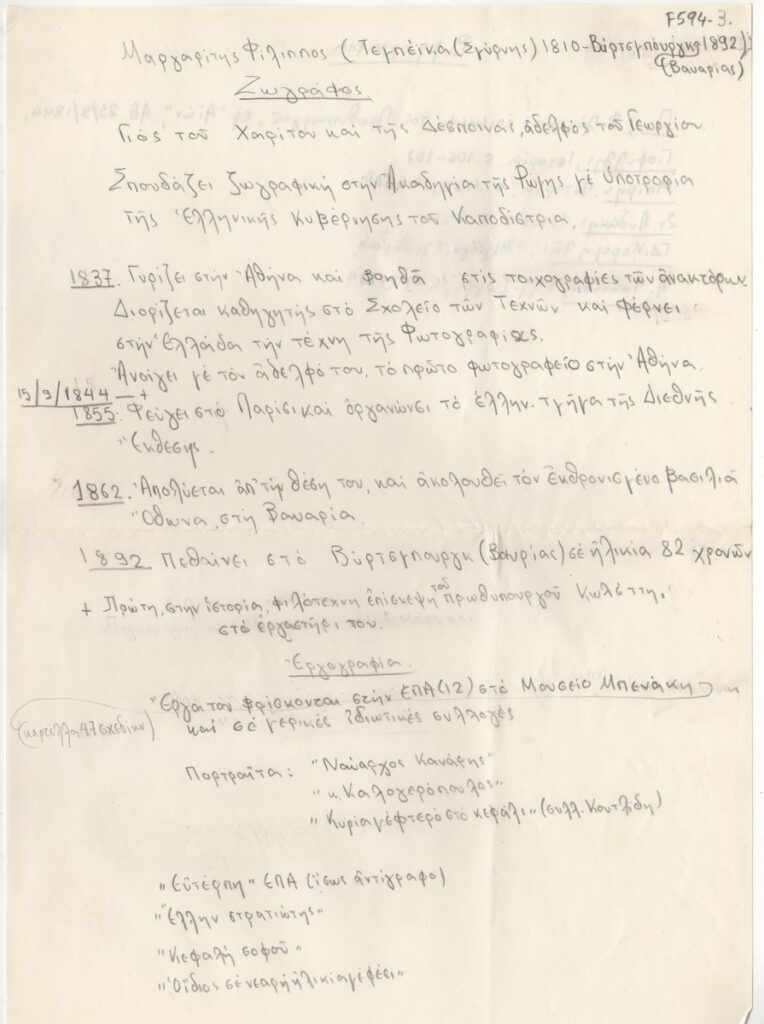 F594-3.
Μαργαρίτης Φίλιππος (Τεμπέϊκα (Σμύρνης) 1810-Βύρτσμπουργκ 1892)
(Βαυαρίας)
Ζωγράφος
Γιός τοῦ Χαρίτου καί τῆς Δέσποινας, ἀδελφός τοῦ Γεωργίου
Σπουδάζει ζωγραφική στήν Ἀκαδημία τῆς Ρώμης μέ ὑποτροφία
τῆς Ἑλληνικῆς Κυβέρνησης τοῦ Καποδίστρια.
1837. Γυρίζει στήν Ἀθήνα καί βοηθᾶ στίς τοιχογραφίες τῶν ἀνακτόρων
Διορίζεται καθηγητής στό Σχολεῖο τῶν Τεχνῶν καί φέρνει
στήν Ἑλλάδα τήν τέχνη τῆς Φωτογραφίας.
Ἀνοίγει μέ τόν ἀδελφό του, τό πρῶτο φωτογραφεῖο στήν Ἀθήνα.
15/9/1844 — +
1855: Φεύγει στό Παρίσι καί ὀργανώνει τό ἑλλην. τμῆμα τῆς Διεθνῆς
Ἔκθεσης.
1862. Ἀπολύεται ἀπ' τήν θέση του, καί ἀκολουθεῖ τόν ἐκθρονισμένο βασιλιά
Ὄθωνα, στή Βαυαρία
1892. Πεθαίνει στό Βύρτσμπουργκ (Βαυρίας) σέ ἡλικία 82 χρονῶν
+ Πρώτη, στήν ἱστορία, φιλότεχνη ἐπίσκεψη τοῦ πρωθυπουργοῦ Κωλέττη,
στό ἐργαστήρι του.
Ἐργογραφία.
Ἔργα του βρίσκονται στήν ΕΠΑ (12) στό Μουσεῖο Μπενάκη
(καρτέλλα 47 σχεδίων)
καί σέ μερικές ἰδιωτικές συλλογές
Πορτραῖτα: "Ναύαρχος Κανάρης"
"κ. Καλογερόπουλος"
"Κυρία μέ φτερό στό κεφάλι" (συλλ. Κουτλίδη)
"Εὐτέρπη" ΕΠΑ (ἴσως ἀντίγραφο)
"Ἕλλην στρατιώτης"
"Κεφαλή σοφοῦ"
"Ὁ ἴδιος σέ νεαρή ἡλικία μέ φέσι"